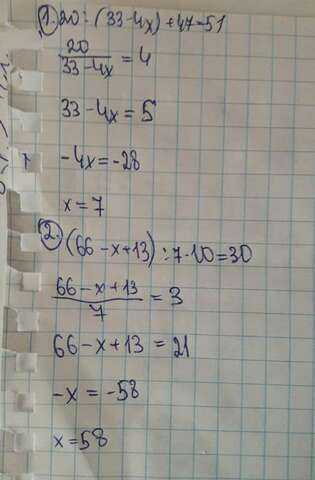 1. 20:(33-4x)+47=51
20/(33-4x) = 4
33-4x=5
-4x=-28
x=7
2. (66-x+13):7·10=30
(66-x+13)/7 = 3
66-x+13=21
-x=-58
x=58